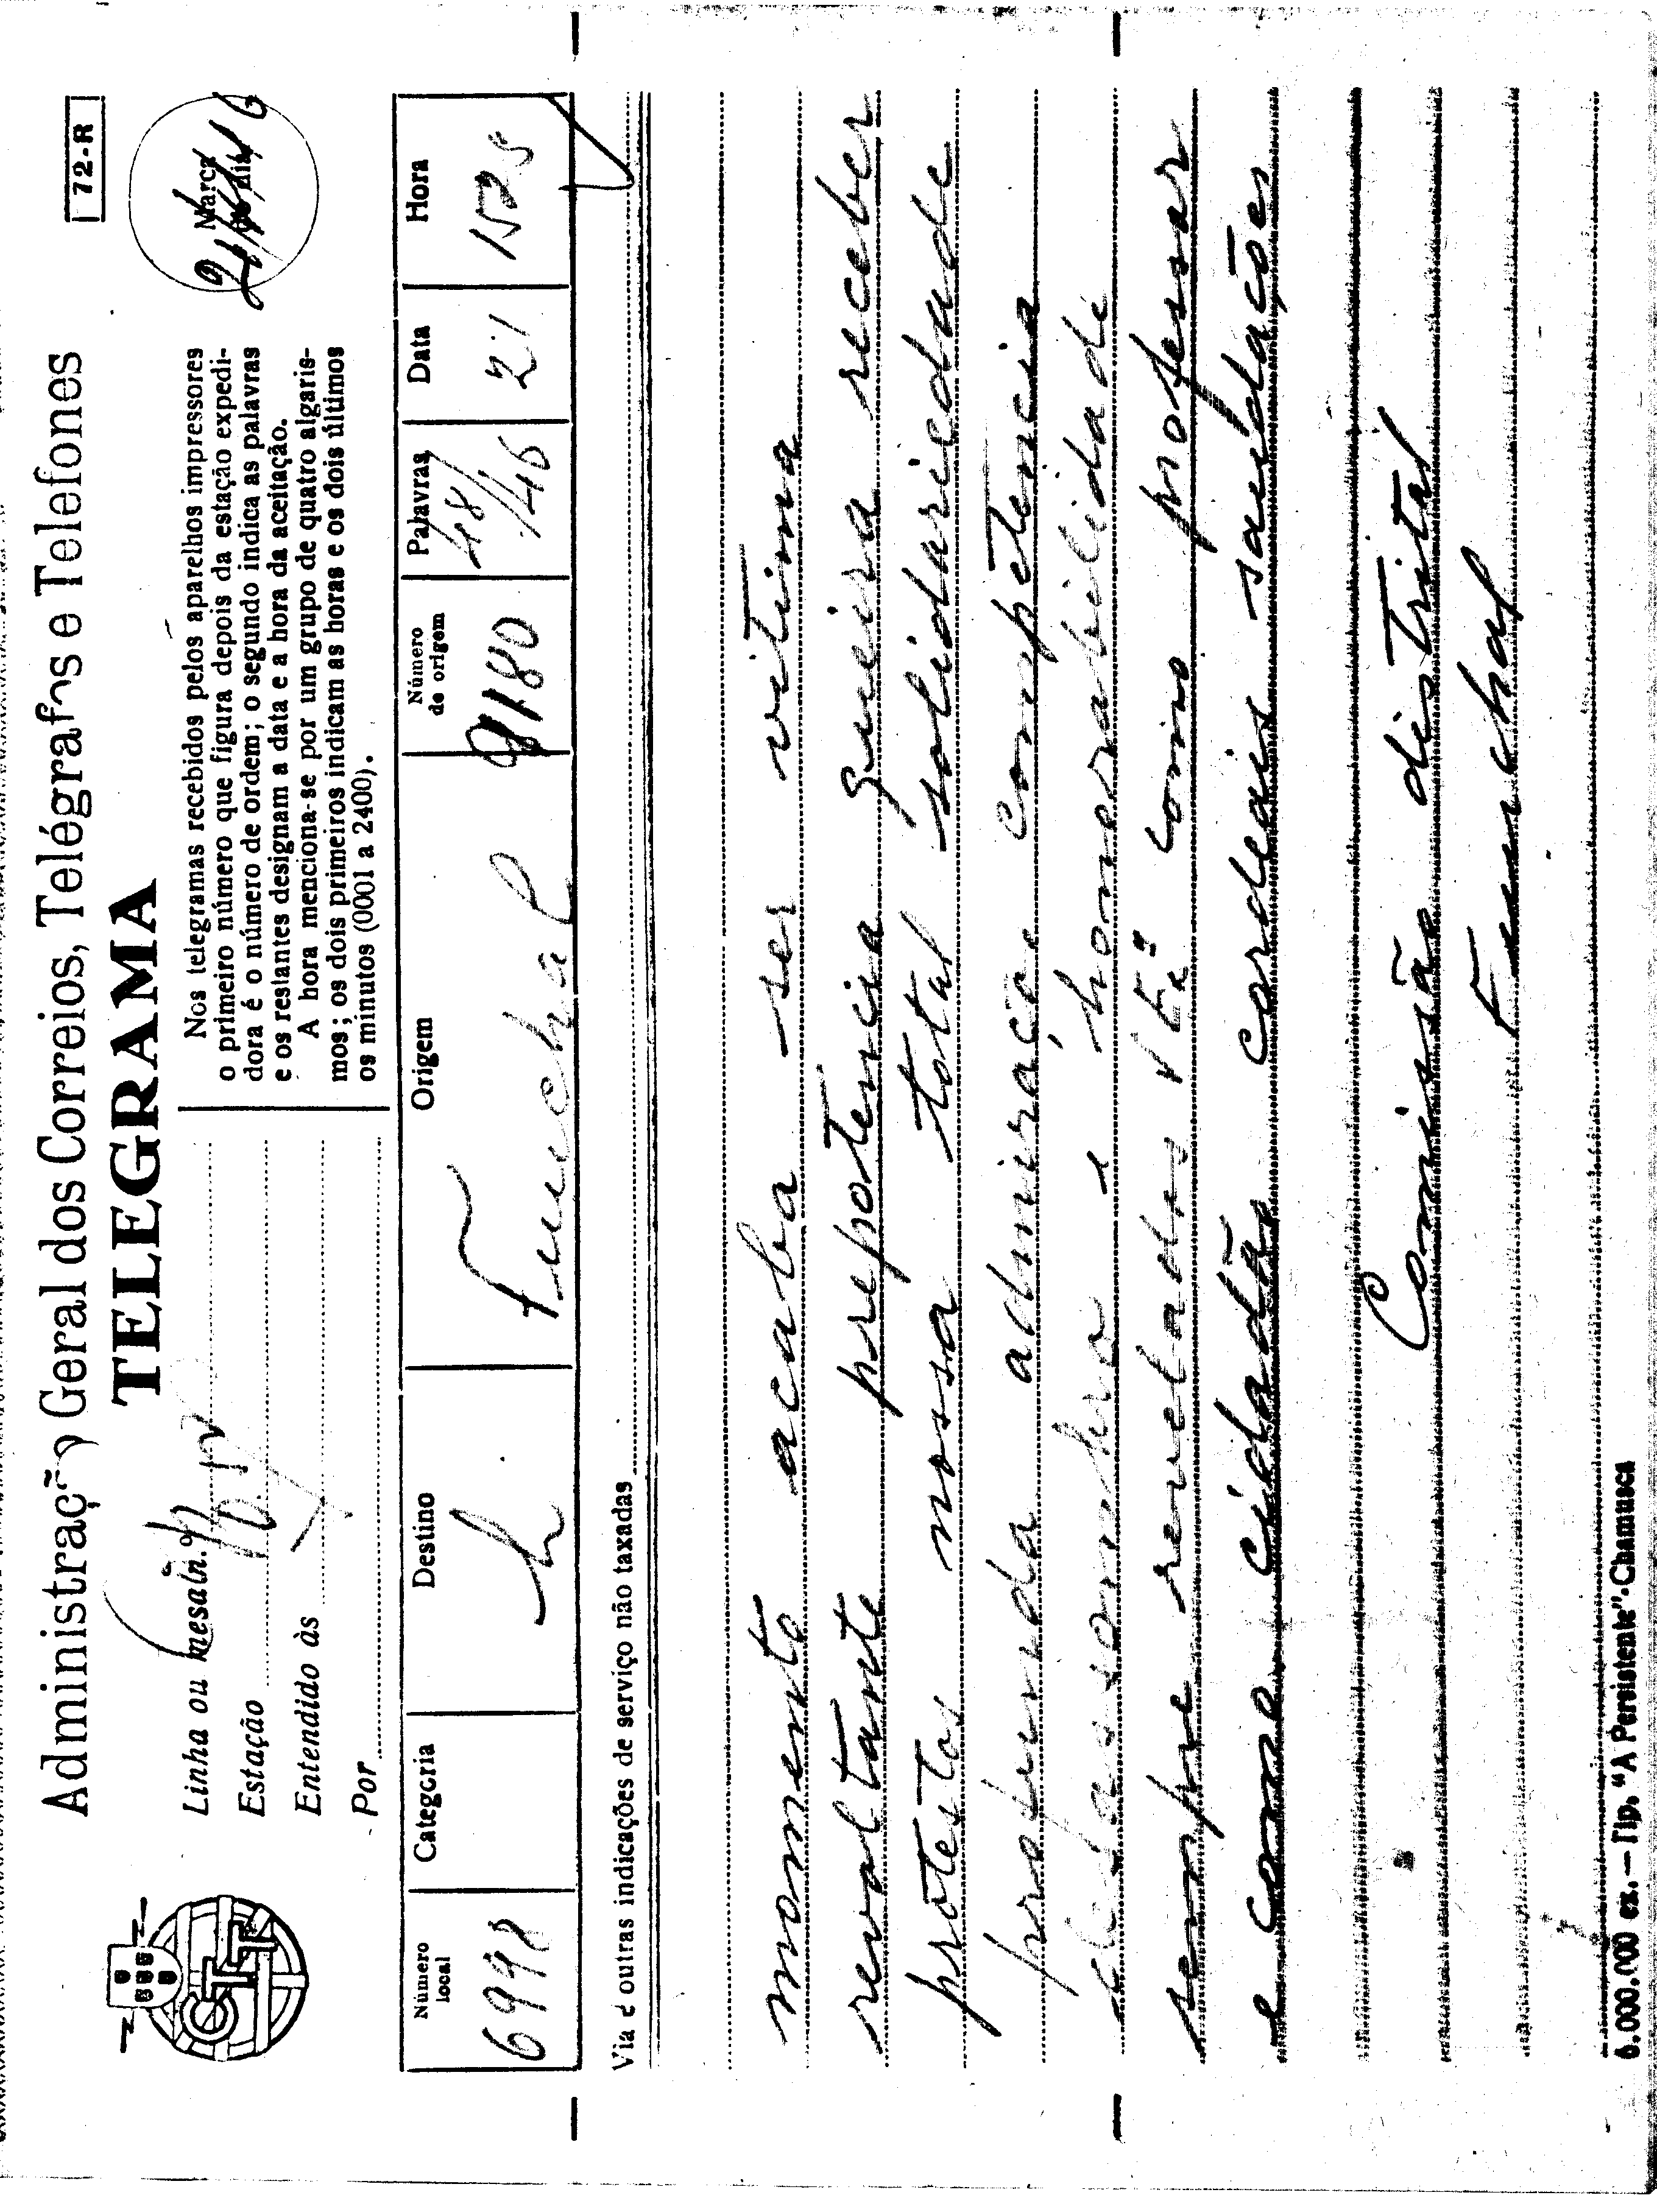 Administração Geral dos Correios, Telégrafos e Telefones
72-R
TELEGRAMA
CTT
Linha ou mesa n.º
Estação
Entendido às
Por
Nos telegramas recebidos pelos aparelhos impressores
o primeiro número que figura depois da estação expedi-
dora é o número de ordem; o segundo indica as palavras
e os restantes designam a data e a hora da aceitação.
A hora menciona-se por um grupo de quatro algaris-
mos; os dois primeiros indicam as horas e os dois últimos
os minutos (0001 a 2400).
Marca do dia
Número local
Categoria
Destino
Origem
Número de origem
Palavras
Data
Hora
6998
Funchal
48/46
21
1525
Via e outras indicações de serviço não taxadas
momento acaba ser vitima
revoltante prepotencia queira receber
protestos nossa total solidariedade
profunda admiração competencia
desassombro e honorabilidade
sempre revelados V Exª como professor
e como cidadão cordeais saudações
Comissão distrital
Funchal
6.000.000 ex. — Tip. "A Persistente"-Chamusca